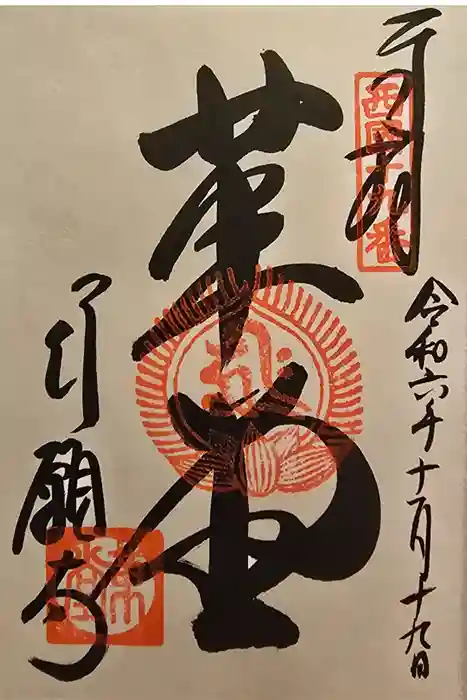 奉拝
西国十九番
令和六年十一月十九日
革堂
行願寺